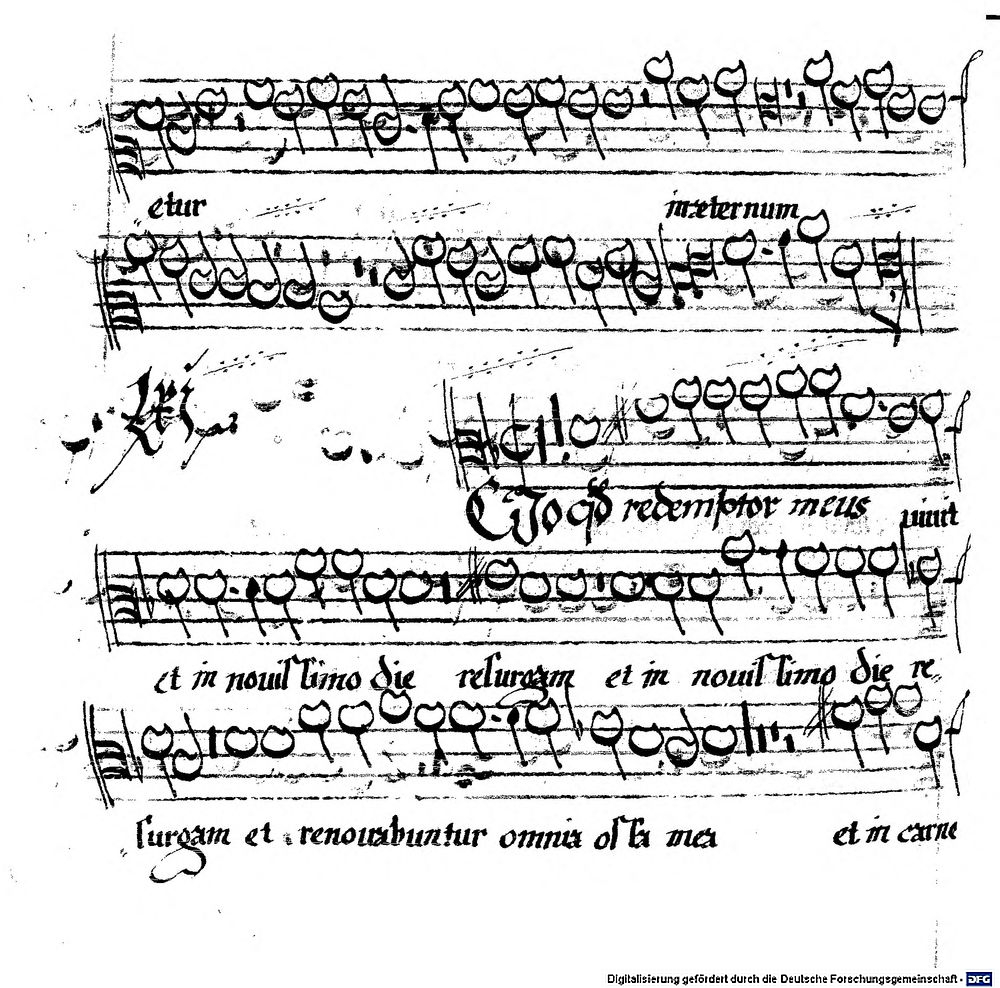 etur inæternum
Scio qd redemptor meus viuit
et in nouissimo die resurgam et in nouissimo die re
surgam et renouabuntur omnia ossa mea et in carne
Digitalisierung gefördert durch die Deutsche Forschungsgemeinschaft - DFG